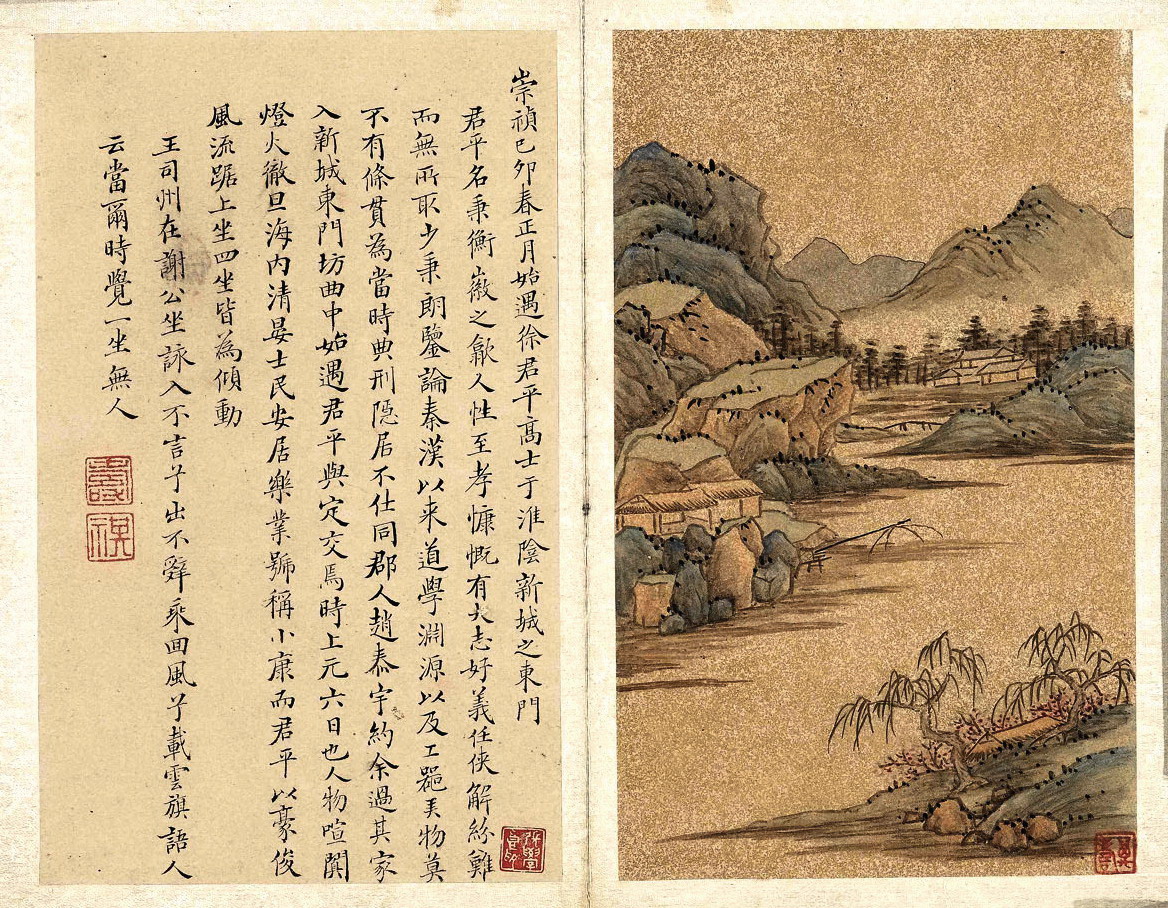 崇禎己卯春正月始遇徐君平高士于淮陰新城之東門
君平名秉衡徽之歙人性至孝慷慨有大志好義任俠解紛難
而無所取少秉朗鑒論秦漢以来道學淵源以及工器美物莫
不有條貫為當時典刑隱居不仕同郡人趙泰宇約余過其家
入新城東門坊曲中始遇君平與定交焉時上元六日也人物喧闐
燈火徹旦海内清晏士民安居樂業號稱小康而君平以豪俊
風流踞上坐四坐皆為傾動
王司州在謝公坐詠入不言兮出不辤乘回風兮載雲旗語人
云當爾時覺一坐無人
壽祺